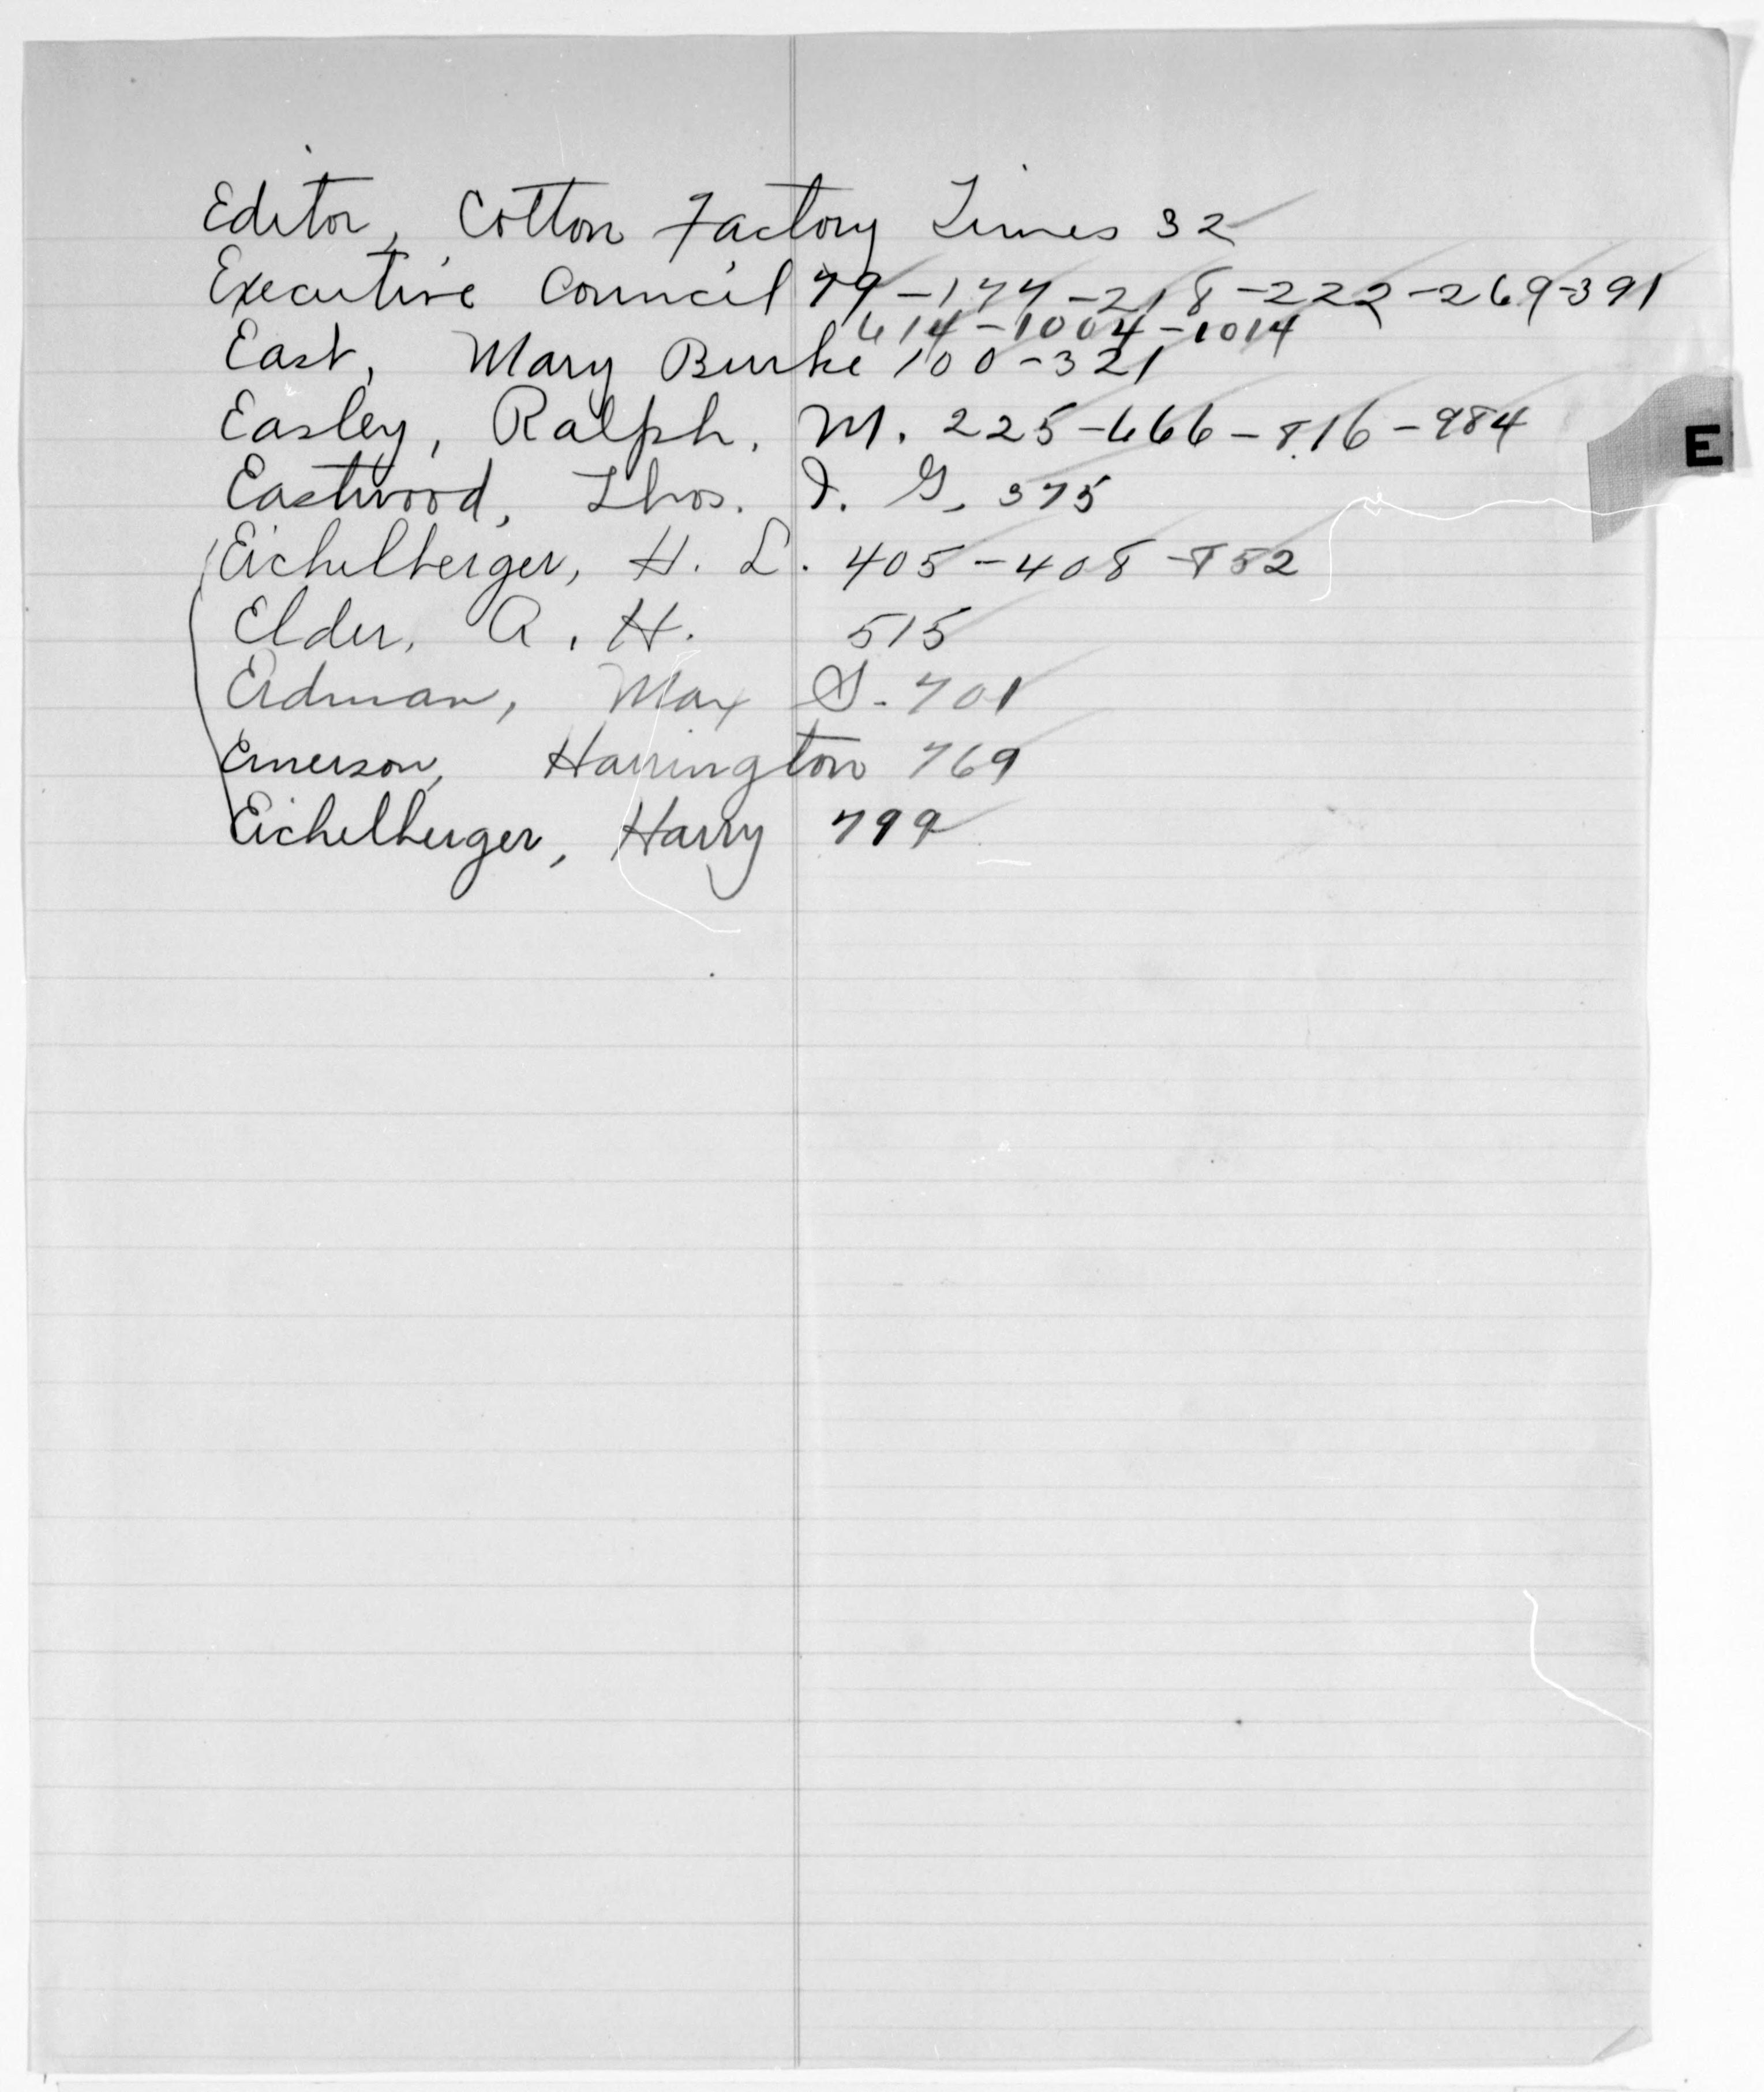 Editor, Cotton Factory Times 32
Executive Council 79-177-218-222-269-391
614-1004-1014
East, Mary Burke 100-321
Easley, Ralph. M. 225-666-816-984
E
Eastwood, Thos. I. G. 375
Eichelberger, H. L. 405-408-852
Elder, A. H. 515
Erdman, Max S. 701
Emerson, Harrington 769
Eichelberger, Harry 799